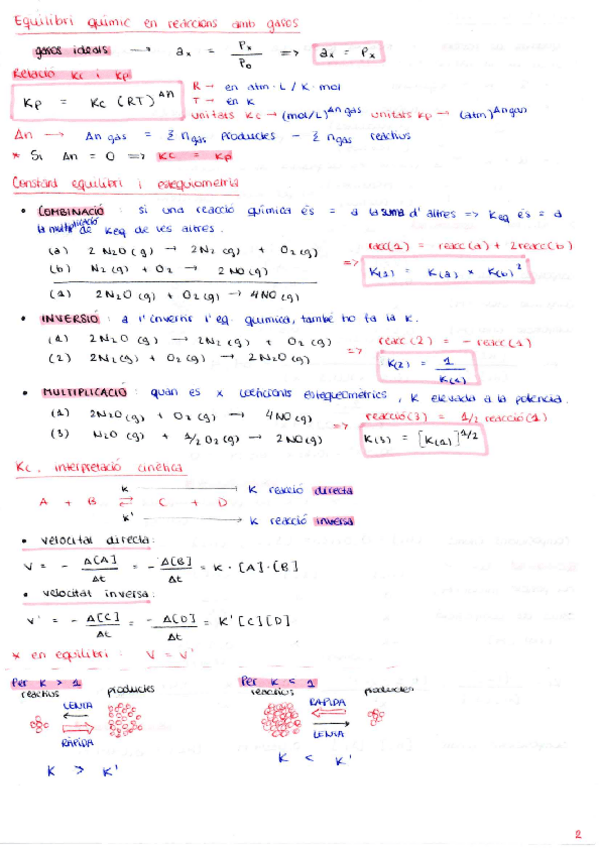 Equilibri químic en reaccions amb gasos
gasos ideals → aₓ = Pₓ / P₀ => aₓ = Pₓ
Relació Kc i Kp
Kp = Kc (RT)^Δn
R → en atm · L / K · mol
T → en K
unitats Kc → (mol/L)^Δn gas unitats Kp → (atm)^Δn gas
Δn → Δn gas = Σ n gas productes − Σ n gas reactius
* Si Δn = 0 => Kc = Kp
Constant equilibri i estequiometria
• COMBINACIÓ : si una reacció química és = a la suma d'altres => Keq és = a
la multiplicació de Keq de les altres.
(a) 2 N2O (g) → 2N2 (g) + O2 (g)
(b) N2 (g) + O2 → 2 NO (g)
(1) 2N2O (g) + O2 (g) → 4NO (g)
=> reacc(1) = reacc(a) + 2reacc(b)
K(1) = K(a) × K(b)²
• INVERSIÓ : a l'invertir l'eq. química, també ho fa la K.
(1) 2N2O (g) → 2N2 (g) + O2 (g)
(2) 2N2 (g) + O2 (g) → 2N2O (g)
=> reacc (2) = − reacc(1)
K(2) = 1 / K(1)
• MULTIPLICACIÓ : quan es x coeficients estequeomètrics, K elevada a la potència.
(1) 2N2O (g) + O2 (g) → 4NO (g)
(3) N2O (g) + 1/2 O2 (g) → 2NO (g)
=> reacció(3) = 1/2 reacció(1)
K(3) = [K(1)]^1/2
Kc, interpretació cinètica
A + B ⇄ C + D
K → K reacció directa
K' → K reacció inversa
• velocitat directa:
V = − Δ[A] / Δt = − Δ[B] / Δt = K · [A] · [B]
• velocitat inversa:
V' = − Δ[C] / Δt = − Δ[D] / Δt = K' [C] [D]
* en equilibri : V = V'
Per K > 1
reactius productes
LENTA
RÀPIDA
K > K'
Per K < 1
reactius productes
RÀPIDA
LENTA
K < K'
2